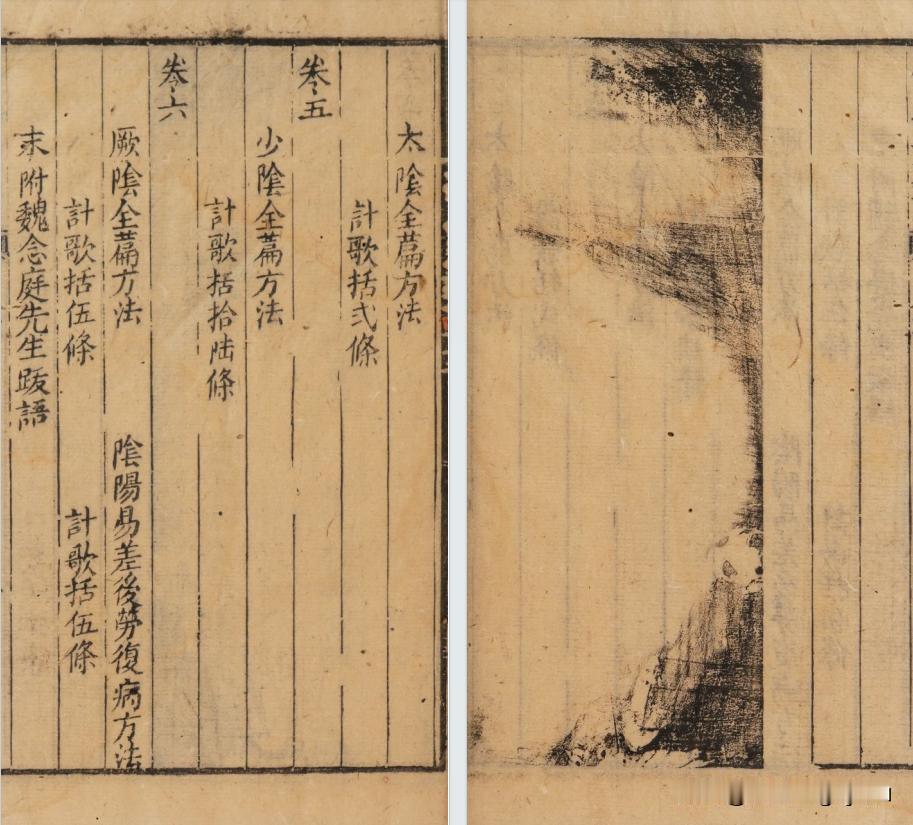 太陰全篇方法
計歌括弍條
卷五
少陰全篇方法
計歌括拾陸條
卷六
厥陰全篇方法　陰陽易差後勞復病方法
計歌括伍條　計歌括伍條
末附魏念庭先生跋語